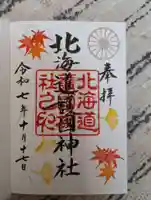 奉拝
北海道護國神社
北海道
社之印
令和七年十月十七日